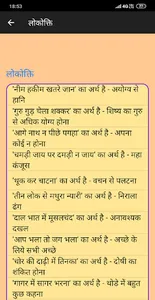 18:53
लोकोक्ति
लोकोक्ति
'नीम हकीम खतरे जान' का अर्थ है - अयोग्य से
हानि
'गुरु गुड़ चेला शक्कर' का अर्थ है - शिष्य का गुरु
से अधिक योग्य होना
'आगे नाथ न पीछे पगहा' का अर्थ है - अपना
कोई न होना
'चमड़ी जाय पर दमड़ी न जाय' का अर्थ है - महा
कंजूस
'थूक कर चाटना' का अर्थ है - वचन से पलटना
'तीन लोक से मथुरा न्यारी' का अर्थ है - निराला
ढंग
'दाल भात में मूसलचंद' का अर्थ है - अनावश्यक
दखल
'आप भला तो जग भला' का अर्थ है - अच्छे के
लिये सभी अच्छे
'चोर की दाढ़ी में तिनका' का अर्थ है - दोषी का
शंकित होना
'गागर में सागर भरना' का अर्थ है - थोडे में बहुत
कुछ कहना